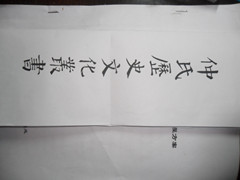 仲氏歷史文化叢書